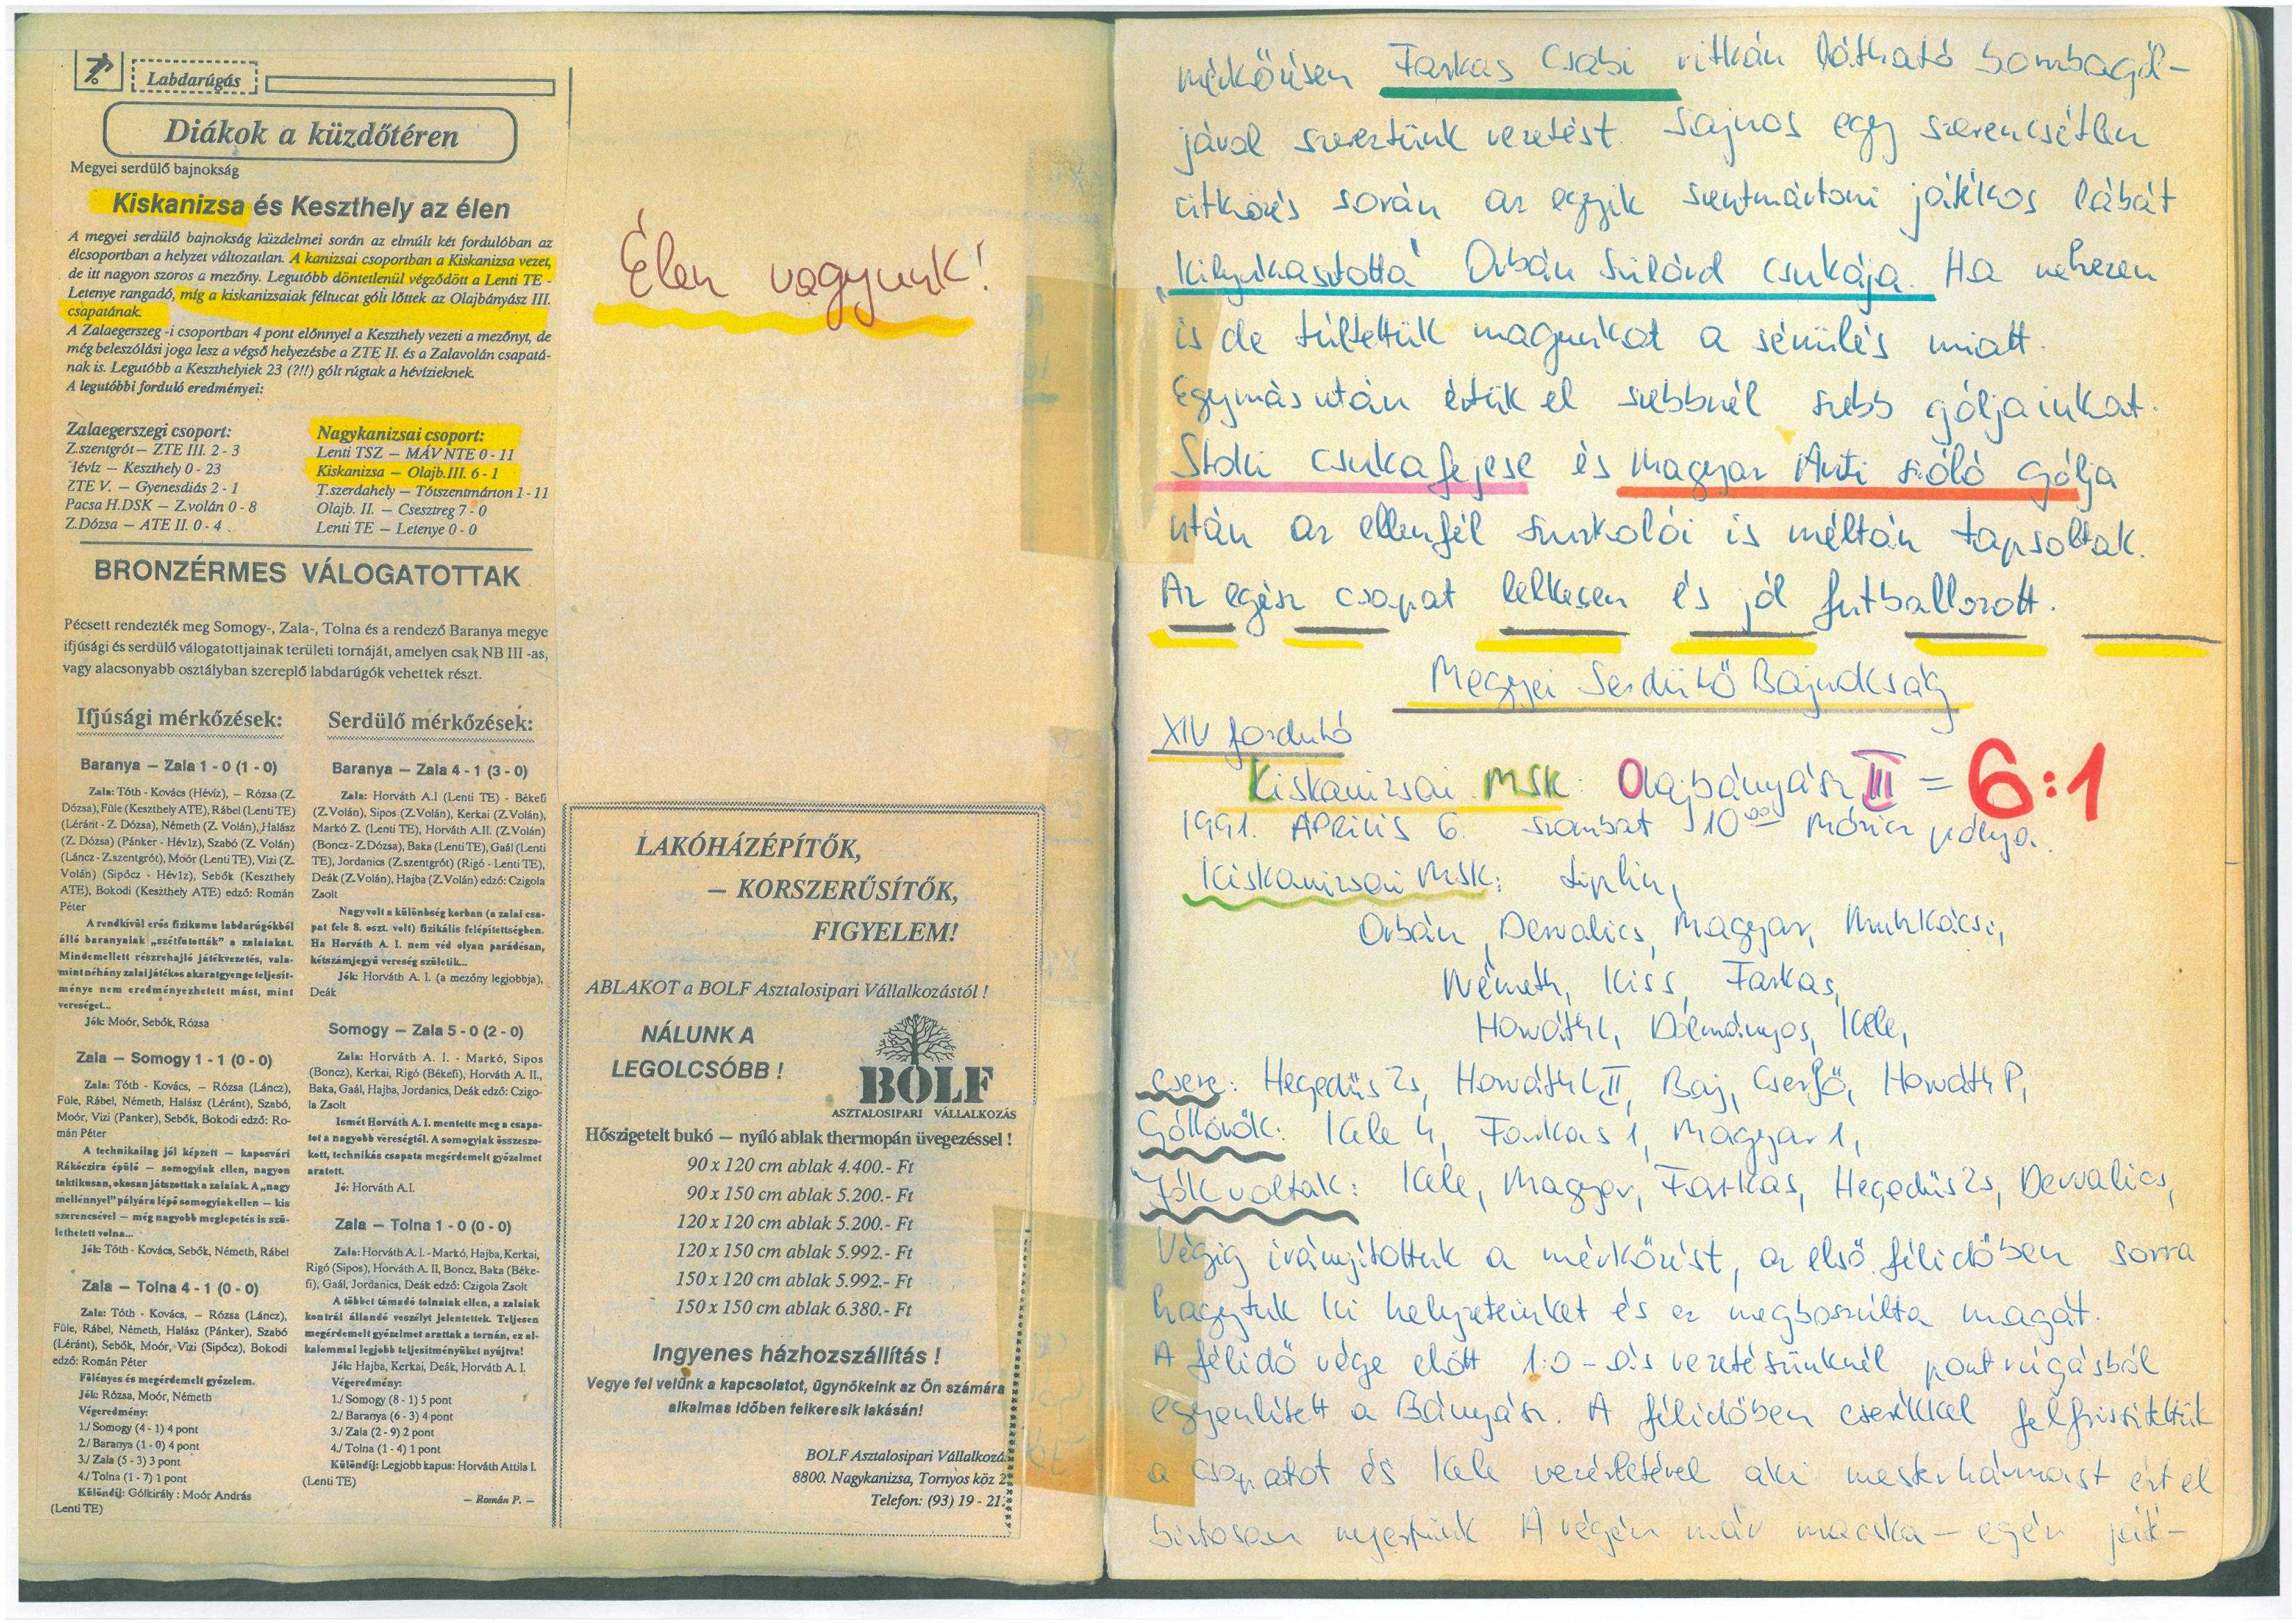 Labdarúgás
Diákok a küzdőtéren
Megyei serdülő bajnokság
Kiskanizsa és Keszthely az élen
A megyei serdülő bajnokság küzdelmei során az elmúlt két fordulóban az
élcsoportban a helyzet változatlan. A kanizsai csoportban a Kiskanizsa vezet,
de itt nagyon szoros a mezőny. Legutóbb döntetlenül végződött a Lenti TE -
Letenye rangadó, míg a kiskanizsaiak féltucat gólt lőttek az Olajbányász III.
csapatának.
A Zalaegerszeg -i csoportban 4 pont előnnyel a Keszthely vezeti a mezőnyt, de
még beleszólási joga lesz a végső helyezésbe a ZTE II. és a Zalavolán csapatá-
nak is. Legutóbb a Keszthelyiek 23 (?!!) gólt rúgtak a hévízieknek.
A legutóbbi forduló eredményei:
Zalaegerszegi csoport:
Z.szentgrót — ZTE III. 2 - 3
Hévíz — Keszthely 0 - 23
ZTE V. — Gyenesdiás 2 - 1
Pacsa H.DSK — Z.volán 0 - 8
Z.Dózsa — ATE II. 0 - 4
Nagykanizsai csoport:
Lenti TSZ — MÁV NTE 0 - 11
Kiskanizsa — Olajb.III. 6 - 1
T.szerdahely — Tótszentmárton 1 - 11
Olajb. II. — Csesztreg 7 - 0
Lenti TE — Letenye 0 - 0
BRONZÉRMES VÁLOGATOTTAK
Pécsett rendezték meg Somogy-, Zala-, Tolna és a rendező Baranya megye
ifjúsági és serdülő válogatottjainak területi tornáját, amelyen csak NB III -as,
vagy alacsonyabb osztályban szereplő labdarúgók vehettek részt.
Ifjúsági mérkőzések:
Baranya — Zala 1 - 0 (1 - 0)
Zala: Tóth - Kovács (Hévíz), — Rózsa (Z.
Dózsa), Füle (Keszthely ATE), Rábel (Lenti TE)
(Léránt - Z. Dózsa), Németh (Z. Volán), Halász
(Z. Dózsa) (Pánker - Hévíz), Szabó (Z. Volán)
(Láncz - Z.szentgrót), Moór (Lenti TE), Vizi (Z.
Volán) (Sipőcz - Hévíz), Sebők (Keszthely
ATE), Bokodi (Keszthely ATE) edző: Román
Péter
A rendkívül erős fizikumu labdarúgókból
álló baranyaiak „szétfutották” a zalaiakat.
Mindemellett részrehajló játékvezetés, vala-
mint néhány zalai játékos akaratgyenge teljesít-
ménye nem eredményezhetett mást, mint
vereséget...
Jók: Moór, Sebők, Rózsa
Zala — Somogy 1 - 1 (0 - 0)
Zala: Tóth - Kovács, — Rózsa (Láncz),
Füle, Rábel, Németh, Halász (Léránt), Szabó,
Moór, Vizi (Panker), Sebők, Bokodi edző: Ro-
mán Péter
A technikailag jól képzett — kaposvári
Rákóczira épülő — somogyiak ellen, nagyon
taktikusan, okosan játszottak a zalaiak. A „nagy
mellénnyel” pályára lépő somogyiak ellen — kis
szerencsével — még nagyobb meglepetés is szü-
lethetett volna...
Jók: Tóth - Kovács, Sebők, Németh, Rábel
Zala — Tolna 4 - 1 (0 - 0)
Zala: Tóth - Kovács, — Rózsa (Láncz),
Füle, Rábel, Németh, Halász (Pánker), Szabó
(Léránt), Sebők, Moór, Vizi (Sipőcz), Bokodi
edző: Román Péter
Fölényes és megérdemelt győzelem.
Jók: Rózsa, Moór, Németh
Végeredmény:
1./ Somogy (4 - 1) 4 pont
2./ Baranya (1 - 0) 4 pont
3./ Zala (5 - 3) 3 pont
4./ Tolna (1 - 7) 1 pont
Különdíj: Gólkirály : Moór András
(Lenti TE)
Serdülő mérkőzések:
Baranya — Zala 4 - 1 (3 - 0)
Zala: Horváth A.I (Lenti TE) - Békefi
(Z.Volán), Sipos (Z.Volán), Kerkai (Z.Volán),
Markó Z. (Lenti TE), Horváth A.II. (Z.Volán)
(Boncz - Z.Dózsa), Baka (Lenti TE), Gaál (Lenti
TE), Jordanics (Z.szentgrót) (Rigó - Lenti TE),
Deák (Z.Volán), Hajba (Z.Volán) edző: Czigola
Zsolt
Nagy volt a különbség korban (a zalai csa-
pat fele 8. oszt. volt) fizikális felépítettségben.
Ha Horváth A. I. nem véd olyan parádésan,
kétszámjegyű vereség születik...
Jók: Horváth A. I. (a mezőny legjobbja),
Deák
Somogy — Zala 5 - 0 (2 - 0)
Zala: Horváth A. I. - Markó, Sipos
(Boncz), Kerkai, Rigó (Békefi), Horváth A. II.,
Baka, Gaál, Hajba, Jordanics, Deák edző: Czigo-
la Zsolt
Ismét Horváth A. I. mentette meg a csapa-
tot a nagyobb vereségtől. A somogyiak összeszo-
kott, technikás csapata megérdemelt győzelmet
aratott.
Jó: Horváth A.I.
Zala — Tolna 1 - 0 (0 - 0)
Zala: Horváth A. I. - Markó, Hajba, Kerkai,
Rigó (Sipos), Horváth A. II, Boncz, Baka (Béke-
fi), Gaál, Jordanics, Deák edző: Czigola Zsolt
A többet támadó tolnaiak ellen, a zalaiak
kontrái állandó veszélyt jelentettek. Teljesen
megérdemelt győzelmet arattak a tornán, ez al-
kalommal legjobb teljesítményüket nyújtva!
Jók: Hajba, Kerkai, Deák, Horváth A. I.
Végeredmény:
1./ Somogy (8 - 1) 5 pont
2./ Baranya (6 - 3) 4 pont
3./ Zala (2 - 9) 2 pont
4./ Tolna (1 - 4) 1 pont
Különdíj: Legjobb kapus: Horváth Attila I.
(Lenti TE)
— Román P. —
Élen vagyunk!
LAKÓHÁZÉPÍTŐK,
— KORSZERŰSÍTŐK,
FIGYELEM!
ABLAKOT a BOLF Asztalosipari Vállalkozástól !
NÁLUNK A
LEGOLCSÓBB !
BOLF
ASZTALOSIPARI VÁLLALKOZÁS
Hőszigetelt bukó — nyíló ablak thermopán üvegezéssel !
90 x 120 cm ablak 4.400.- Ft
90 x 150 cm ablak 5.200.- Ft
120 x 120 cm ablak 5.200.- Ft
120 x 150 cm ablak 5.992.- Ft
150 x 120 cm ablak 5.992.- Ft
150 x 150 cm ablak 6.380.- Ft
Ingyenes házhozszállítás !
Vegye fel velünk a kapcsolatot, ügynökeink az Ön számára
alkalmas időben felkeresik lakásán!
BOLF Asztalosipari Vállalkozá
8800. Nagykanizsa, Tornyos köz 2
Telefon: (93) 19 - 21
mérkőzésen Farkas Csabi ritkán látható bombagól-
jával szereztünk vezetést. Sajnos egy szerencsétlen
ütközés során az egyik szentmártoni játékos lábát
„kilyukasztotta" Orbán Szilárd csukája. Ha nehezen
is de túltettük magunkat a sérülés miatt.
Egymás után értük el szebbnél szebb góljainkat.
Stoki csukafejese és Magyar Anti szóló gólja
után az ellenfél szurkolói is méltán tapsoltak.
Az egész csapat lelkesen és jól futballozott.
Megyei Serdülő Bajnokság
XIV forduló
Kiskanizsai MSK : Olajbányász III = 6:1
1991. ÁPRILIS 6. szombat 10⁰⁰ Móricz pálya.
Kiskanizsai MSK: Liplin,
Orbán, Dervalics, Magyar, Munkácsi,
Németh, Kiss, Farkas,
Horváth L, Dolmányos, Kele,
Csere: Hegedüs Zs, Horváth L II, Baj, Cserfő, Horváth P,
Góllövők: Kele 4, Farkas 1, Magyar 1,
Jók voltak: Kele, Magyar, Farkas, Hegedüs Zs, Dervalics,
Végig irányítottuk a mérkőzést, az első félidőben sorra
hagytuk ki helyzeteinket és ez megboszulta magát.
A félidő vége előtt 1:0-ás vezetésünknél pontrúgásból
egyenlített a Bányász. A félidőben cserékkel felfrissítettük
a csapatot és Kele vezérletével aki mesterhármast ért el
biztosan nyertünk A végén már macska-egér ják-